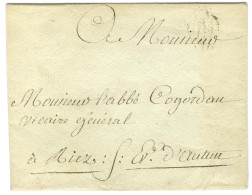 A Monsieur
Monsieur l'abbé Cogordan
vicaire général
à Riez